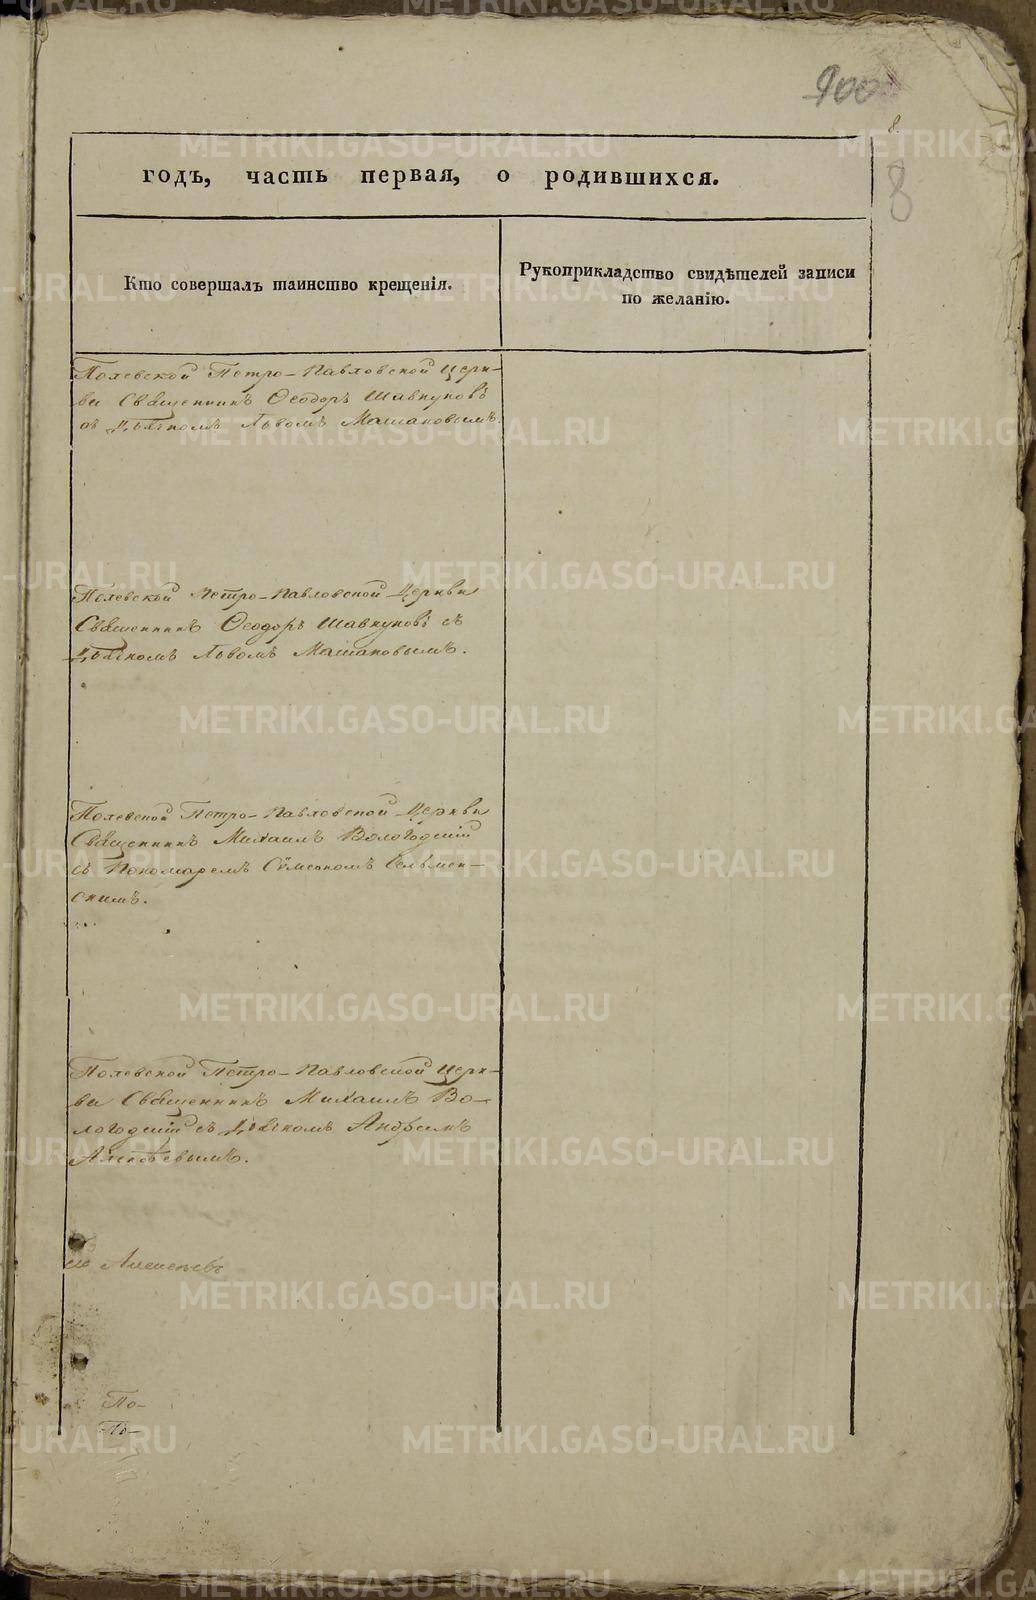 900
8.
8
годъ, часть первая, о родившихся.
Кто совершалъ таинство крещенія.
Рукоприкладство свидѣтелей записи
по желанію.
Полевской Петро-Павловской Церк-
ви Священникъ Ѳеодоръ Шавкуновъ
съ Дьячкомъ Львомъ Машановымъ.
Полевской Петро-Павловской Церкви
Священникъ Ѳеодоръ Шавкуновъ съ
Дьячкомъ Львомъ Машановымъ.
Полевской Петро-Павловской Церкви
Священникъ Михаилъ Вологодскій
съ Пономаремъ Сѵмеономъ
скимъ.
Полевской Петро-Павловской Церк-
ви Священникъ Михаилъ Во-
логодскій съ Дьячкомъ Андреемъ
Алексѣевымъ.
Алексѣевъ
По-
По-
METRIKI.GASO-URAL.RU